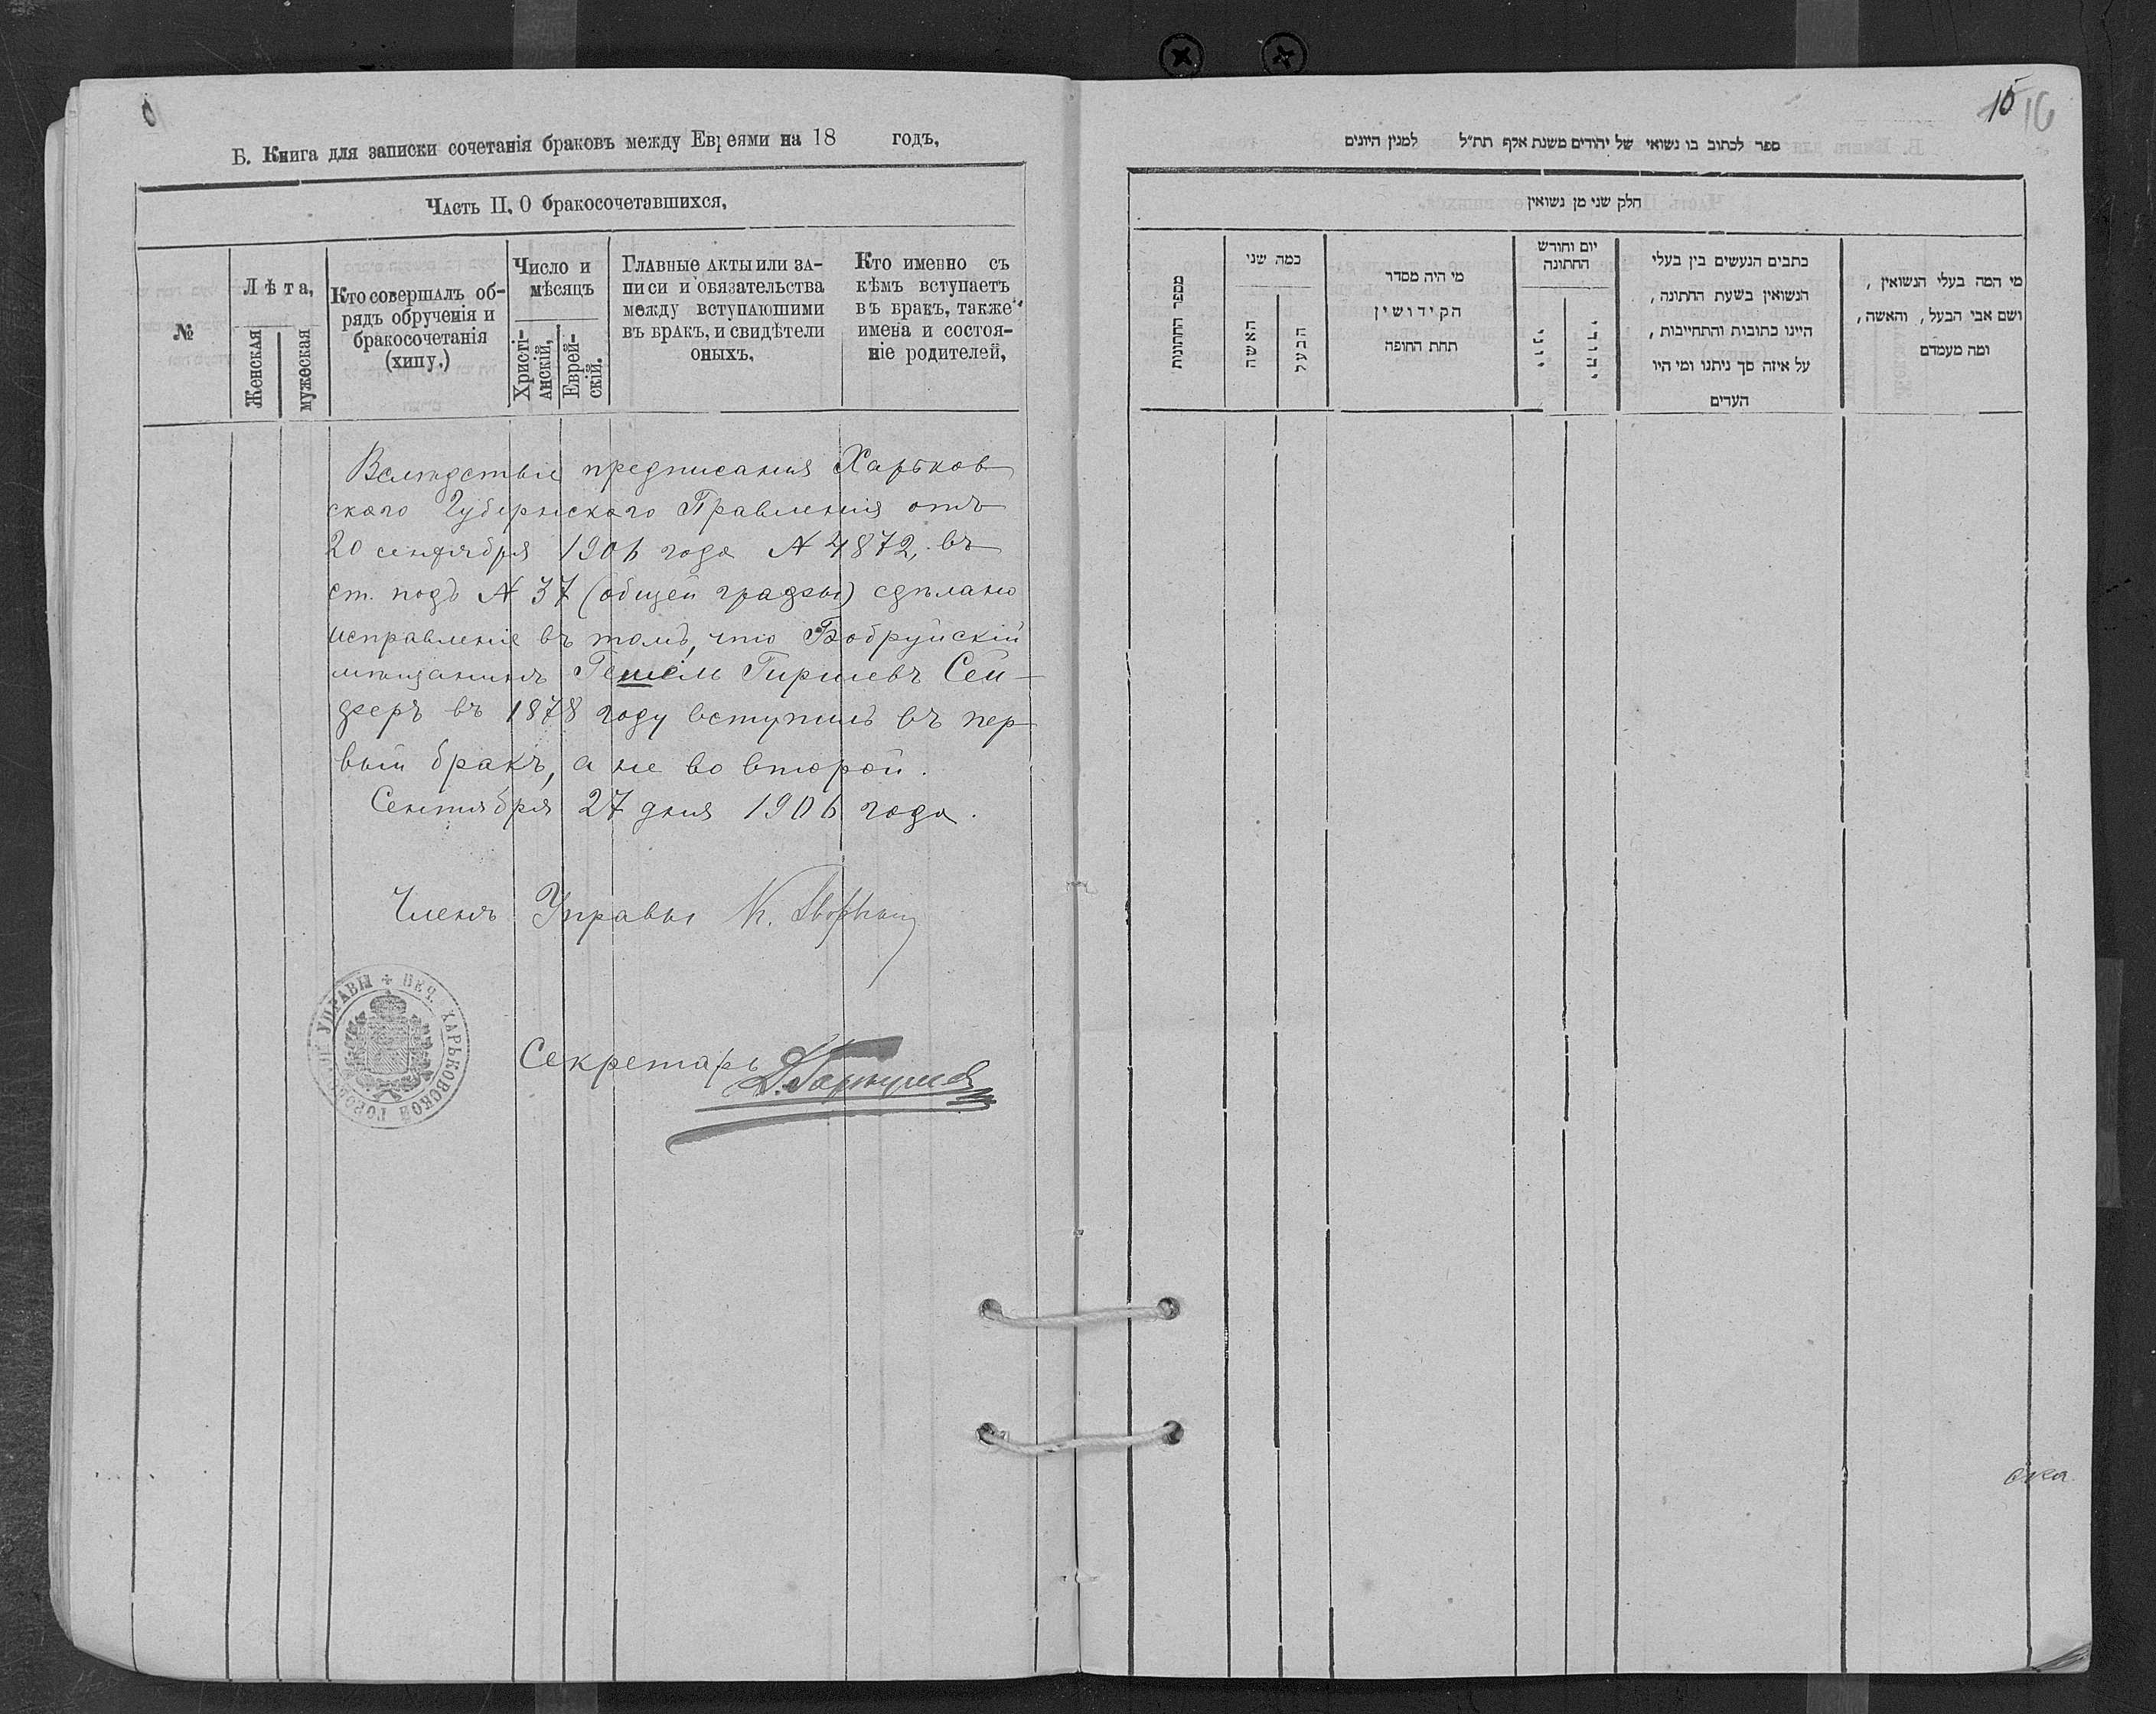 Б. Книга для записки сочетанія браковъ между Евреями на 18 годъ.
Часть II. О бракосочетавшихся.
№
Лѣта.
Женская
мужеская
Кто совершалъ об-
рядъ обрученія и
бракосочетанія
(хипу.)
Число и
мѣсяцъ
Христі-
анскій.
Еврей-
скій.
Главные акты или за-
писи и обязательства
между вступающими
въ бракъ, и свидѣтели
оныхъ.
Кто именно съ
кѣмъ вступаетъ
въ бракъ, также
имена и состоя-
ніе родителей.
Вслѣдствіе предписанія Харьков
ского Губернского Правленія отъ
20 сентября 1906 года № 4872, въ
ст. подъ № 37 (общей графы) сдѣлано
исправленіе въ томъ, что Бобруйскій
мѣщанинъ Гешель Гиршевъ Сен-
деръ въ 1878 году вступилъ въ пер
вый бракъ, а не во второй.
Сентября 27 дня 1906 года.
Членъ Управы К.
ПЕЧ. ХАРЬКОВСКОЙ ГОРОДСКОЙ УПРАВЫ
Секретарь
15 16
ספר לכתוב בו נשואי של יהודים משנת אלף תת״ל למנין היונים
חלק שני מן נשואין
מספר החתונות
כמה שני
האשה
הבעל
מי היה מסדר
הקידושין
תחת החופה
יום וחורש
החתונה
יוני
יהודי
כתבים הנעשים בין בעלי
הנשואין בשעת החתונה,
היינו כתובות והתחייבות,
על איזה סך ניתנו ומי היו
העדים
מי המה בעלי הנשואין,
ושם אבי הבעל, והאשה,
ומה מעמדם